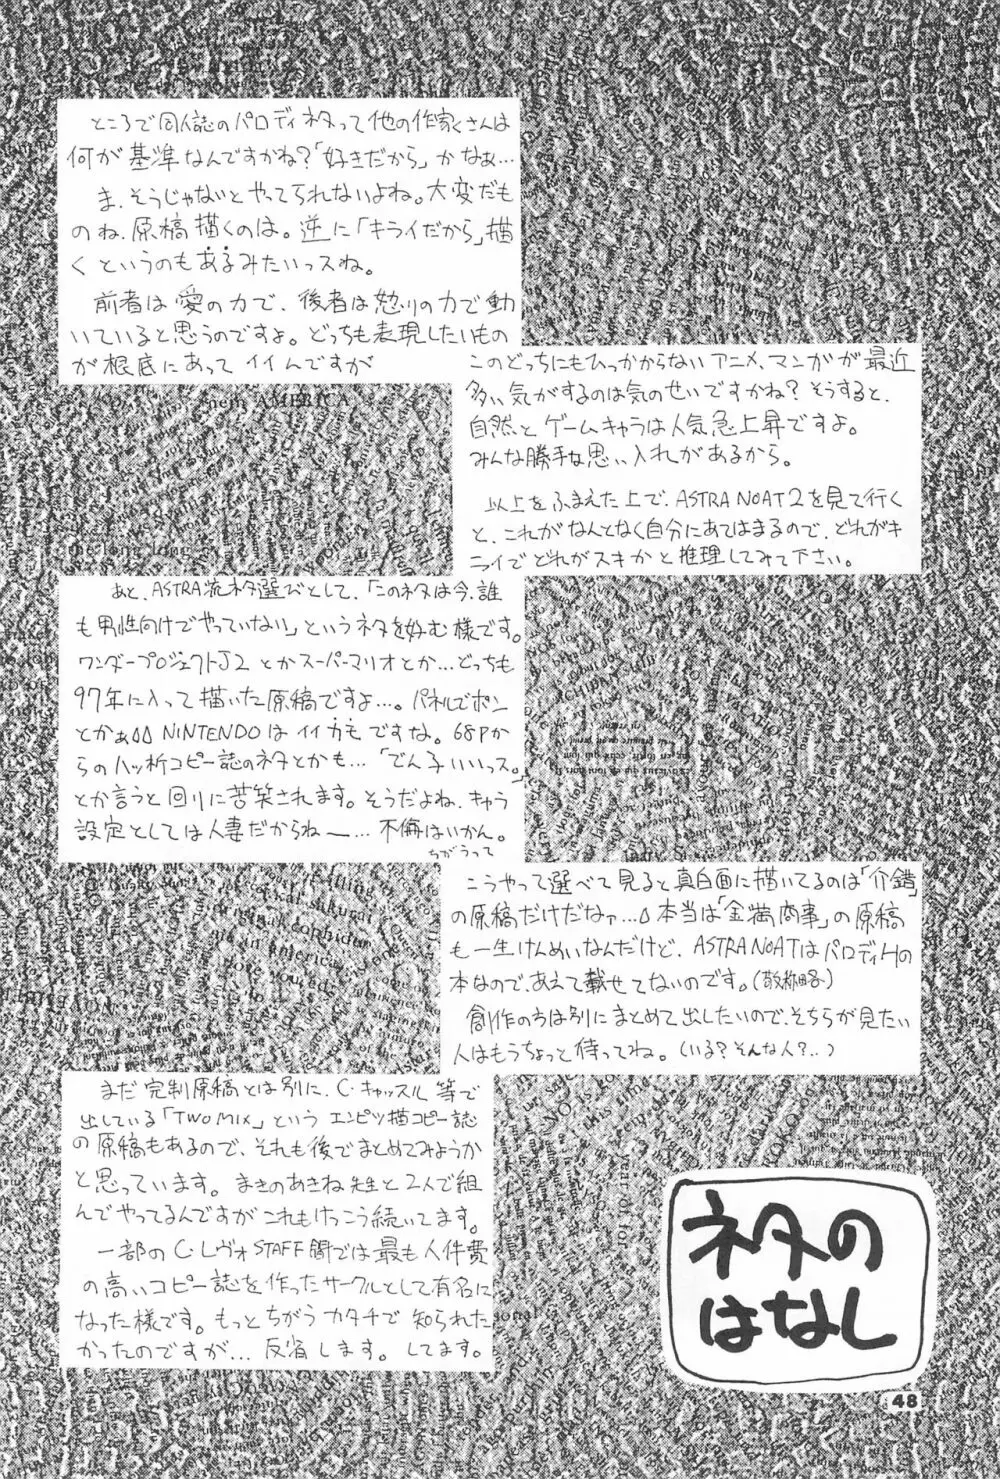 ところで同人誌のパロディネタって他の作家くさんは
何が基準なんですかね?「好きだから」かなぁ…
ま、そうじゃないとやってられないよね。大変だも
のね、原稿描くのは。逆に「キライだから」描
くというのもあるみたいっスね。
前者は愛の力で、後者は怒りの力で動
いていると思うのですよ。どっちも表現したいもの
が根底にあってイイんですが
このどっちにもひっかからないアニメ、マンガが最近
多い気がするのは気のせいですかね?そうすると、
自然とゲームキャラは人気急上昇ですよ。
みんな勝手な思い入れがあるから。
以上をふまえた上で、ASTRA NOAT2を見て行く
と、これがなんとなく自分にあてはまるので、どれがキ
ライでどれがスキかと推理してみて下さい。
あと、ASTRA流ネタ選びとして、「このネタは今、誰
も男性向けでやっていない」というネタを好む様です。
ワンダープロジェクトJ2とかスーパーマリオとか…どっちも
97年に入って描いた原稿ですよ…。パネルでポン
とかぁ△△NINTENDOはイイカモですな。68Pか
らのハッ析コピー誌のネタとかも…「でん子いいっス。」
とか言うと回りに苦笑されます。そうだよね、キャラ
設定としては人妻だからねー…不倫はいかん。
ちがうって
こうやって選べて見ると真白面に描いてるのは「介錯」
の原稿だけだなァ…△本当は「金満商事」の原稿
も一生けんめいなんだけど、ASTRA NOATはパロディMの
本なので、あえて載せてないのです。(敬称略)
創作の方は別にまとめて出したいので、そちらが見たい
人はもうちょっと待ってね。(いる?そんな人?..)
まだ完制原稿とは別に、C・キャッスル等で
出している「TWO MIX」というエンピツ描コピー誌
の原稿もあるので、それも後でまとめてみようか
と思っています。まきのあきね先生と2人で組
んでやってるんですがこれもけっこう続いてます。
一部のC・レヴォSTAFF間では最も人件費
の高いコピー誌を作ったサークルとして有名に
なった様です。もっとちがうカタチで知られた
かったのですが…反省します。してます。
ネタの
はなし
48